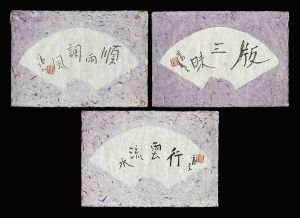 順雨調風
版三昧
行雲流水